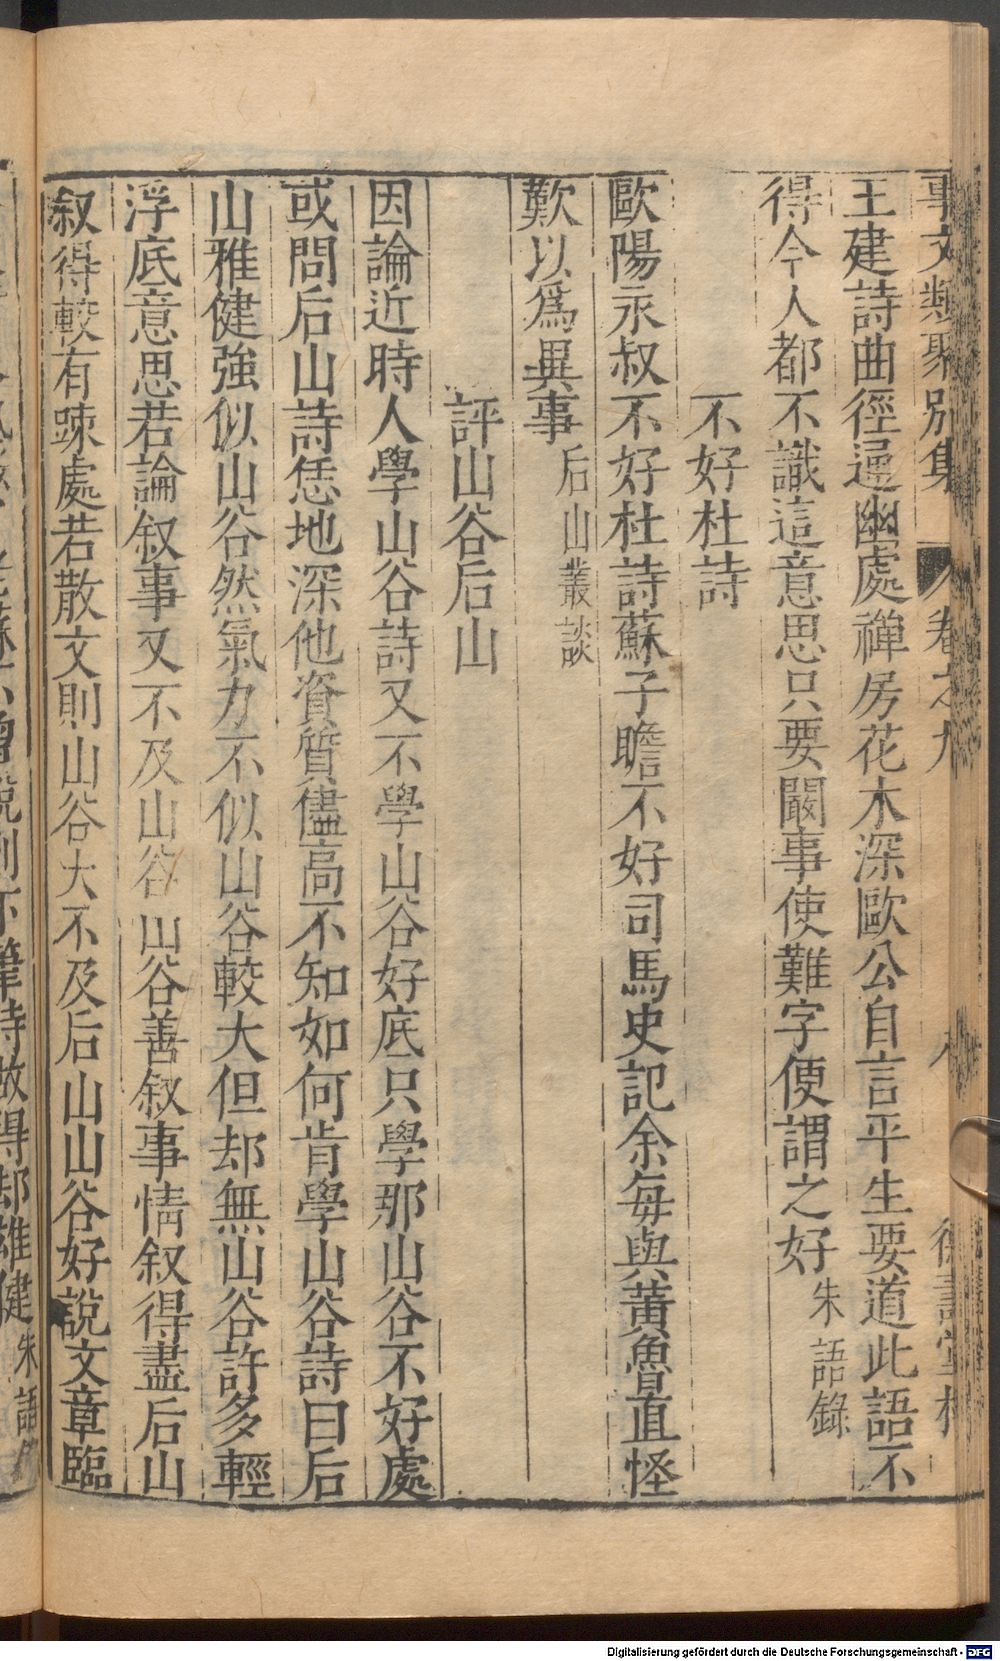 事文類聚別集 卷之九 德壽堂梓
王建詩曲徑通幽處禪房花木深歐公自言平生要道此語不
得今人都不識這意思只要嚴事使難字便謂之好朱語錄
不好杜詩
歐陽永叔不好杜詩蘇子瞻不好司馬史記余每與黃魯直怪
歎以爲異事后山叢談
評山谷后山
因論近時人學山谷詩又不學山谷好底只學那山谷不好處
或問后山詩恁地深他資質儘高不知如何肯學山谷詩曰后
山雅健強似山谷然氣力不似山谷較大但却無山谷許多輕
浮底意思若論叙事又不及山谷山谷善叙事情叙得盡后山
叙得較有踈處若散文則山谷大不及后山山谷好說文章臨
時做得却雄健朱語
Digitalisierung gefördert durch die Deutsche Forschungsgemeinschaft - DFG